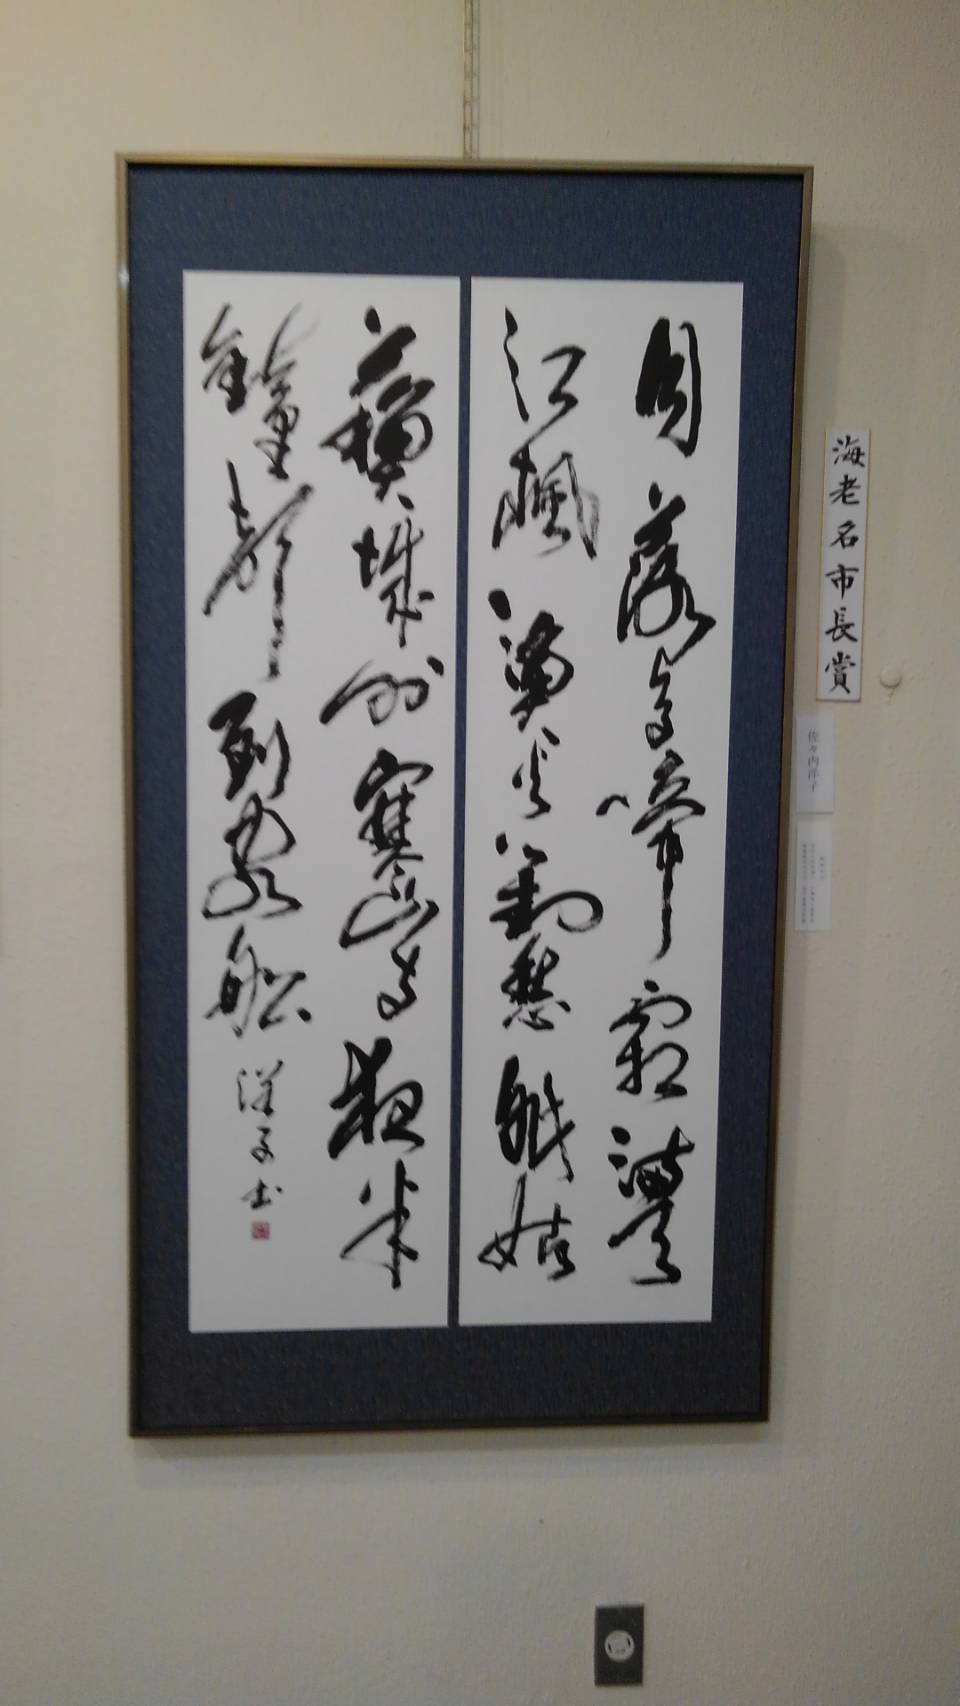 月落烏啼霜滿天
江楓漁火對愁眠姑
蘓城外寒山寺夜半
鐘聲到客船 洋子書
海老名市長賞
佐々内洋子